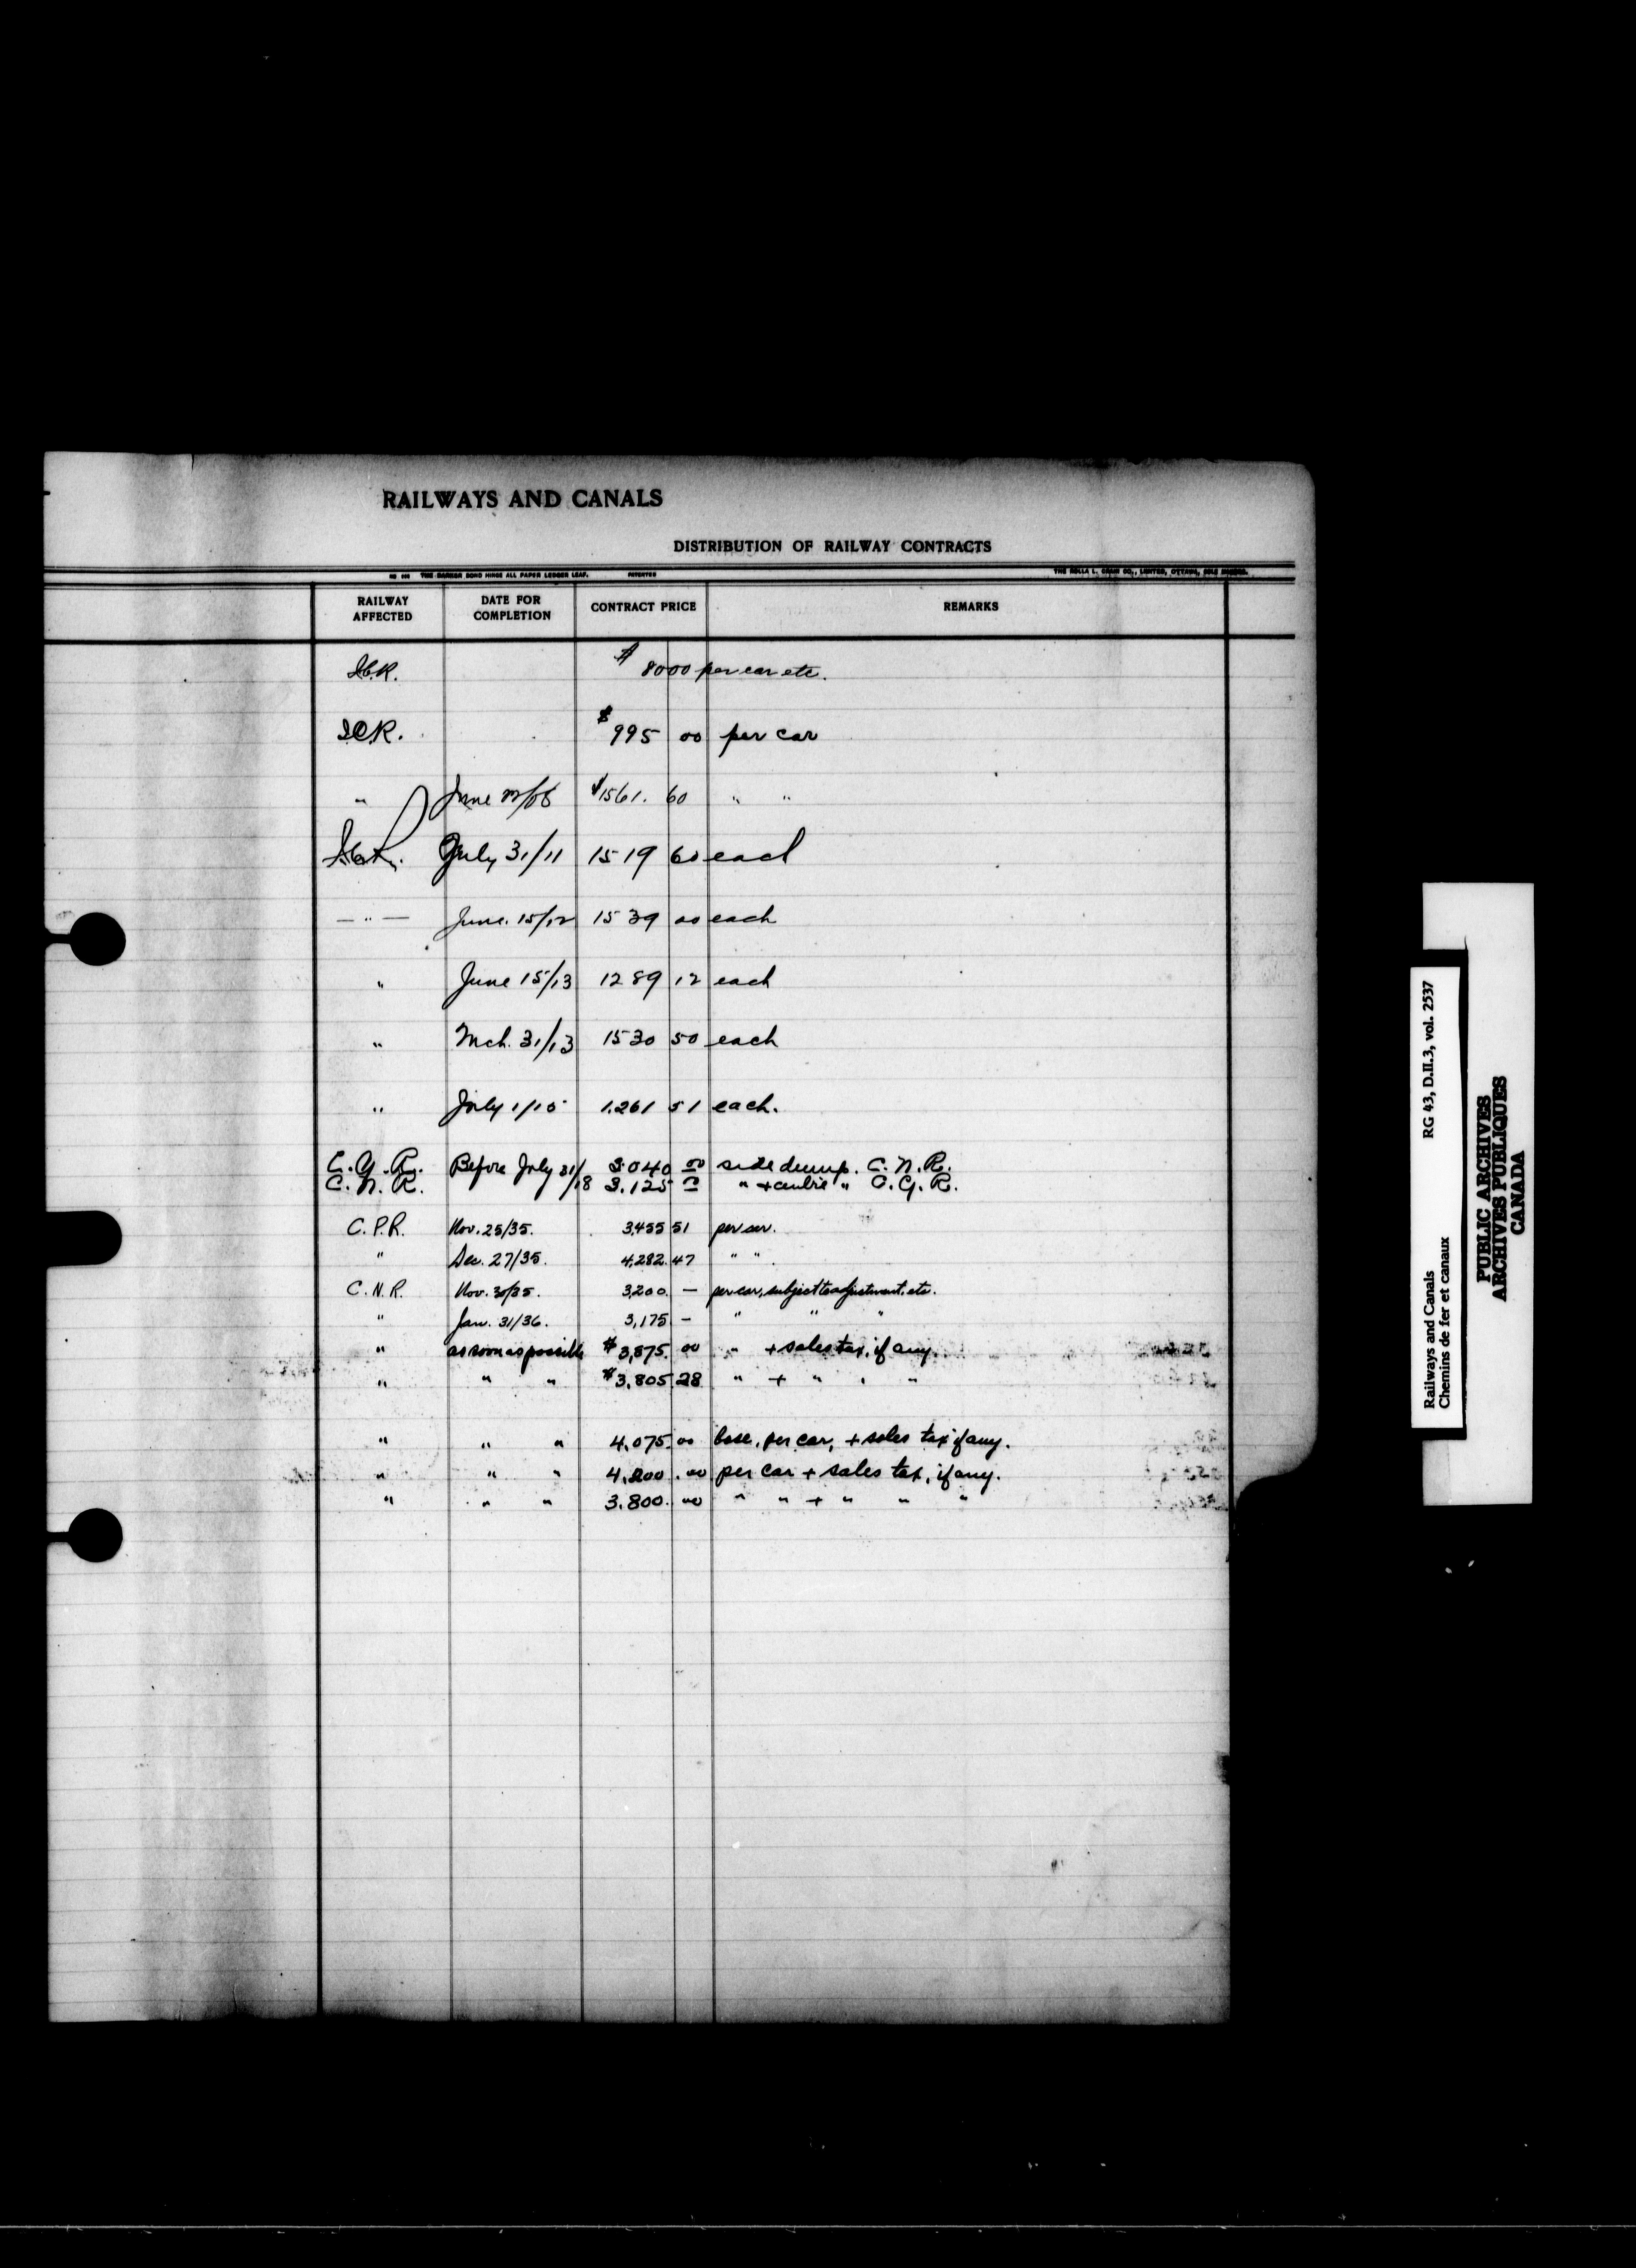 RAILWAYS AND CANALS
DISTRIBUTION OF RAILWAY CONTRACTS
THE BARKER BOND HINGE ALL PAPER LEDGER LEAF. PATENTED THE ROLLA L. CRAIN CO., LIMITED, OTTAWA, SOLE MAKERS.
RAILWAY AFFECTED DATE FOR COMPLETION CONTRACT PRICE REMARKS
I.C.R. $ 8000 per car etc.
I.C.R. $ 995 00 per car
" June $1561. 60 " "
July 31/11 1519 60 each
— " — June. 15/12 1539 00 each
" June 15/13 1289 12 each
" Mch. 31/13 1530 50 each
" July 1/15 1.261 51 each.
C.G.R. Before July 31/18 3.040 00 side dump. C.N.R.
C.N.R. 3.125 00 " + centre " C.G.R.
C.P.R. Nov. 25/35. 3,455 51 per car.
" Dec. 27/35. 4,282 47 " "
C.N.R. Nov. 30/35. 3,200. — per car, subject to adjustment, etc.
" Jan. 31/36. 3,175 - " " "
" as soon as possible $3,875. 00 " + sales tax, if any.
" " " $3,805 28 " + " " "
" " " 4,075 00 base, per car, + sales tax if any.
" " " 4,200 .00 per car + sales tax, if any.
" " " 3.800. 00 " " + " " "
Railways and Canals RG 43, D.II.3, vol. 2537
Chemins de fer et canaux
PUBLIC ARCHIVES
ARCHIVES PUBLIQUES
CANADA